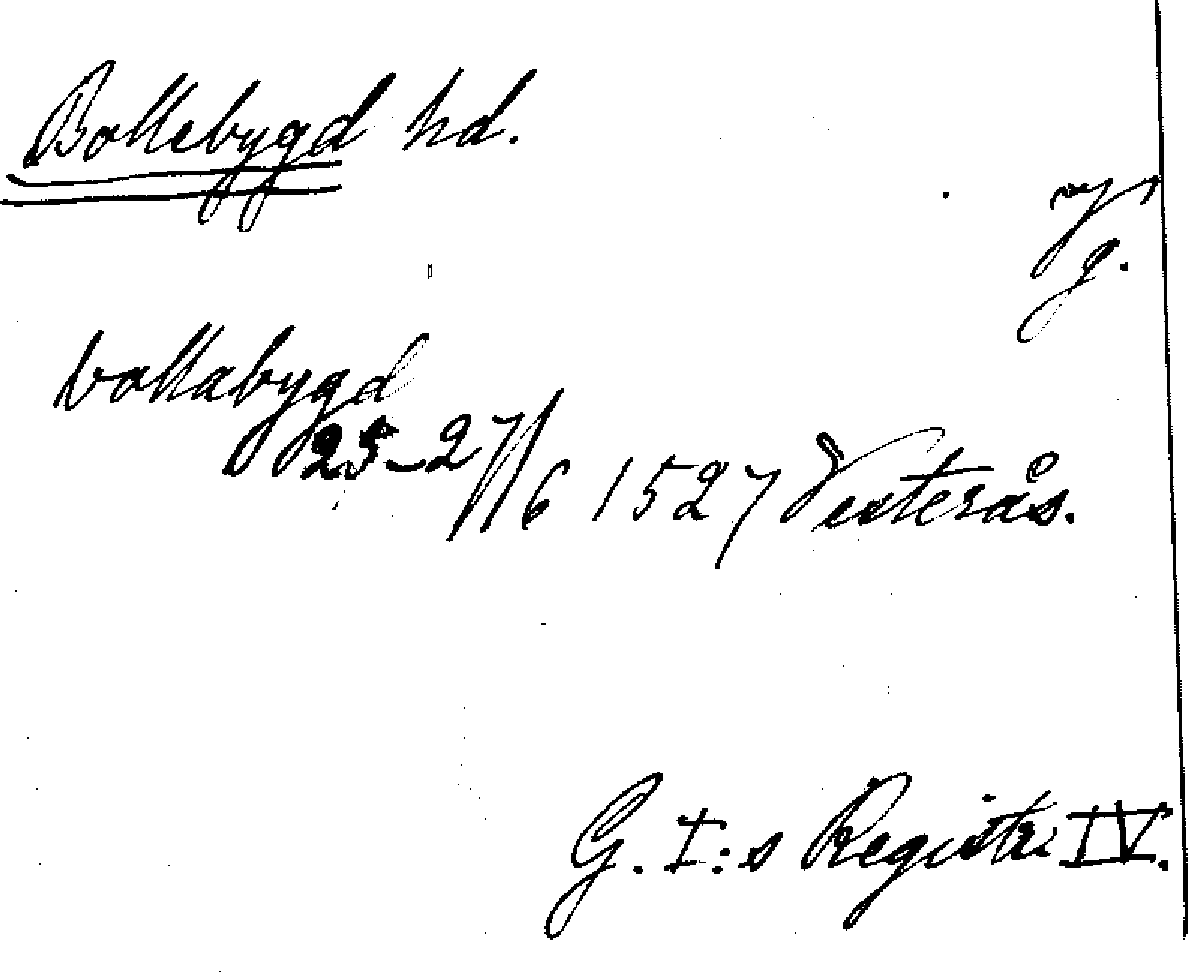 Bollebygd hd.
Vg.
bollabygd
25-27/6 1527 Vesterås.
G. I:s Registr. IV.